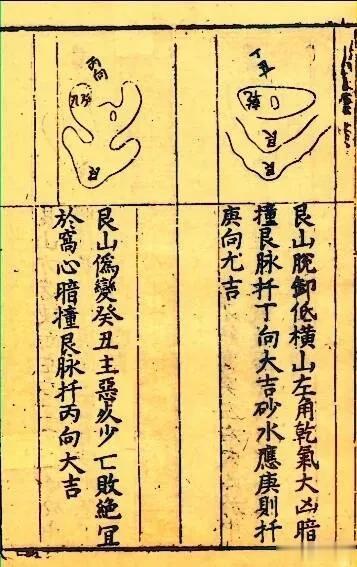 丁向
乾
艮
艮
艮山脫卸低橫山左角乾氣大凶暗
撞艮脉扦丁向大吉砂水應庚則扦
庚向尤吉
丙向
艮
艮山偽變癸丑主惡少亡敗絕冝
於窩心暗撞艮脉扦丙向大吉